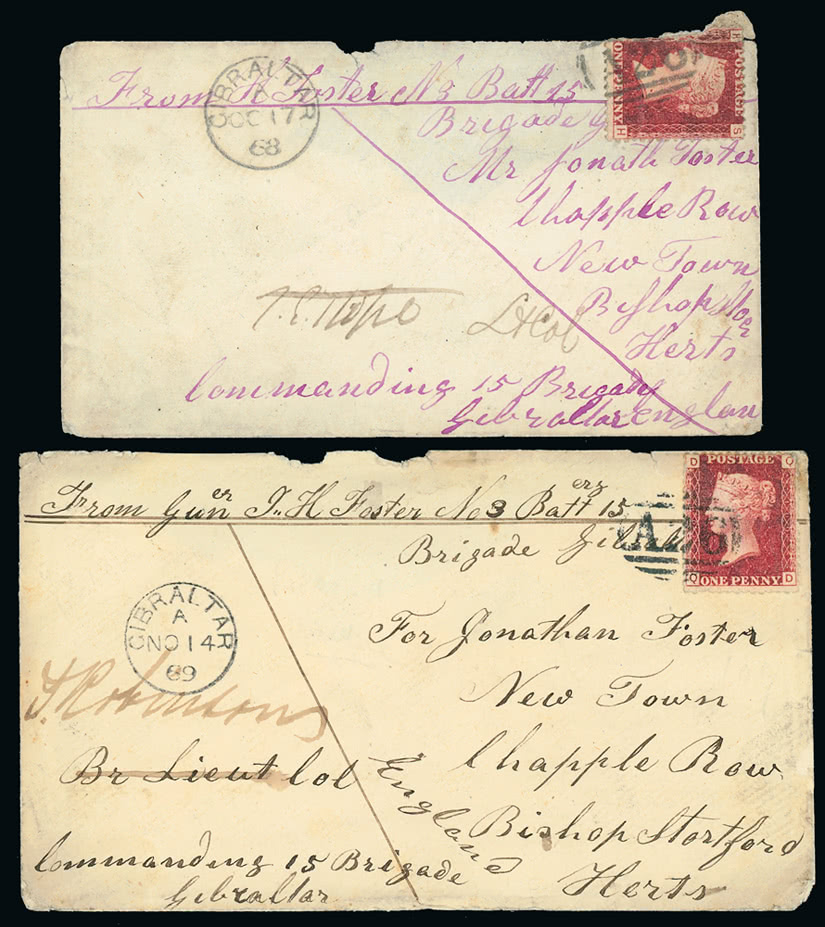 From H Foster No 3 Batt 15
Brigade
Mr Jonath Foster
Chapple Row
New Town
Bishop Stor
Herts
England
GIBRALTAR
A
OC 17
68
Lt Col
Commanding 15 Brigade
Gibraltar
POSTAGE
ONE PENNY
H S
From Guner J.. H Foster No 3 Batterg 15
Brigade
A26
POSTAGE
ONE PENNY
D Q
Q D
GIBRALTAR
A
NO 14
69
For Jonathan Foster
New Town
Chapple Row
Bishop Stortford
Herts
England
Robinson
Br Lieut Col
Commanding 15 Brigade
Gibraltar